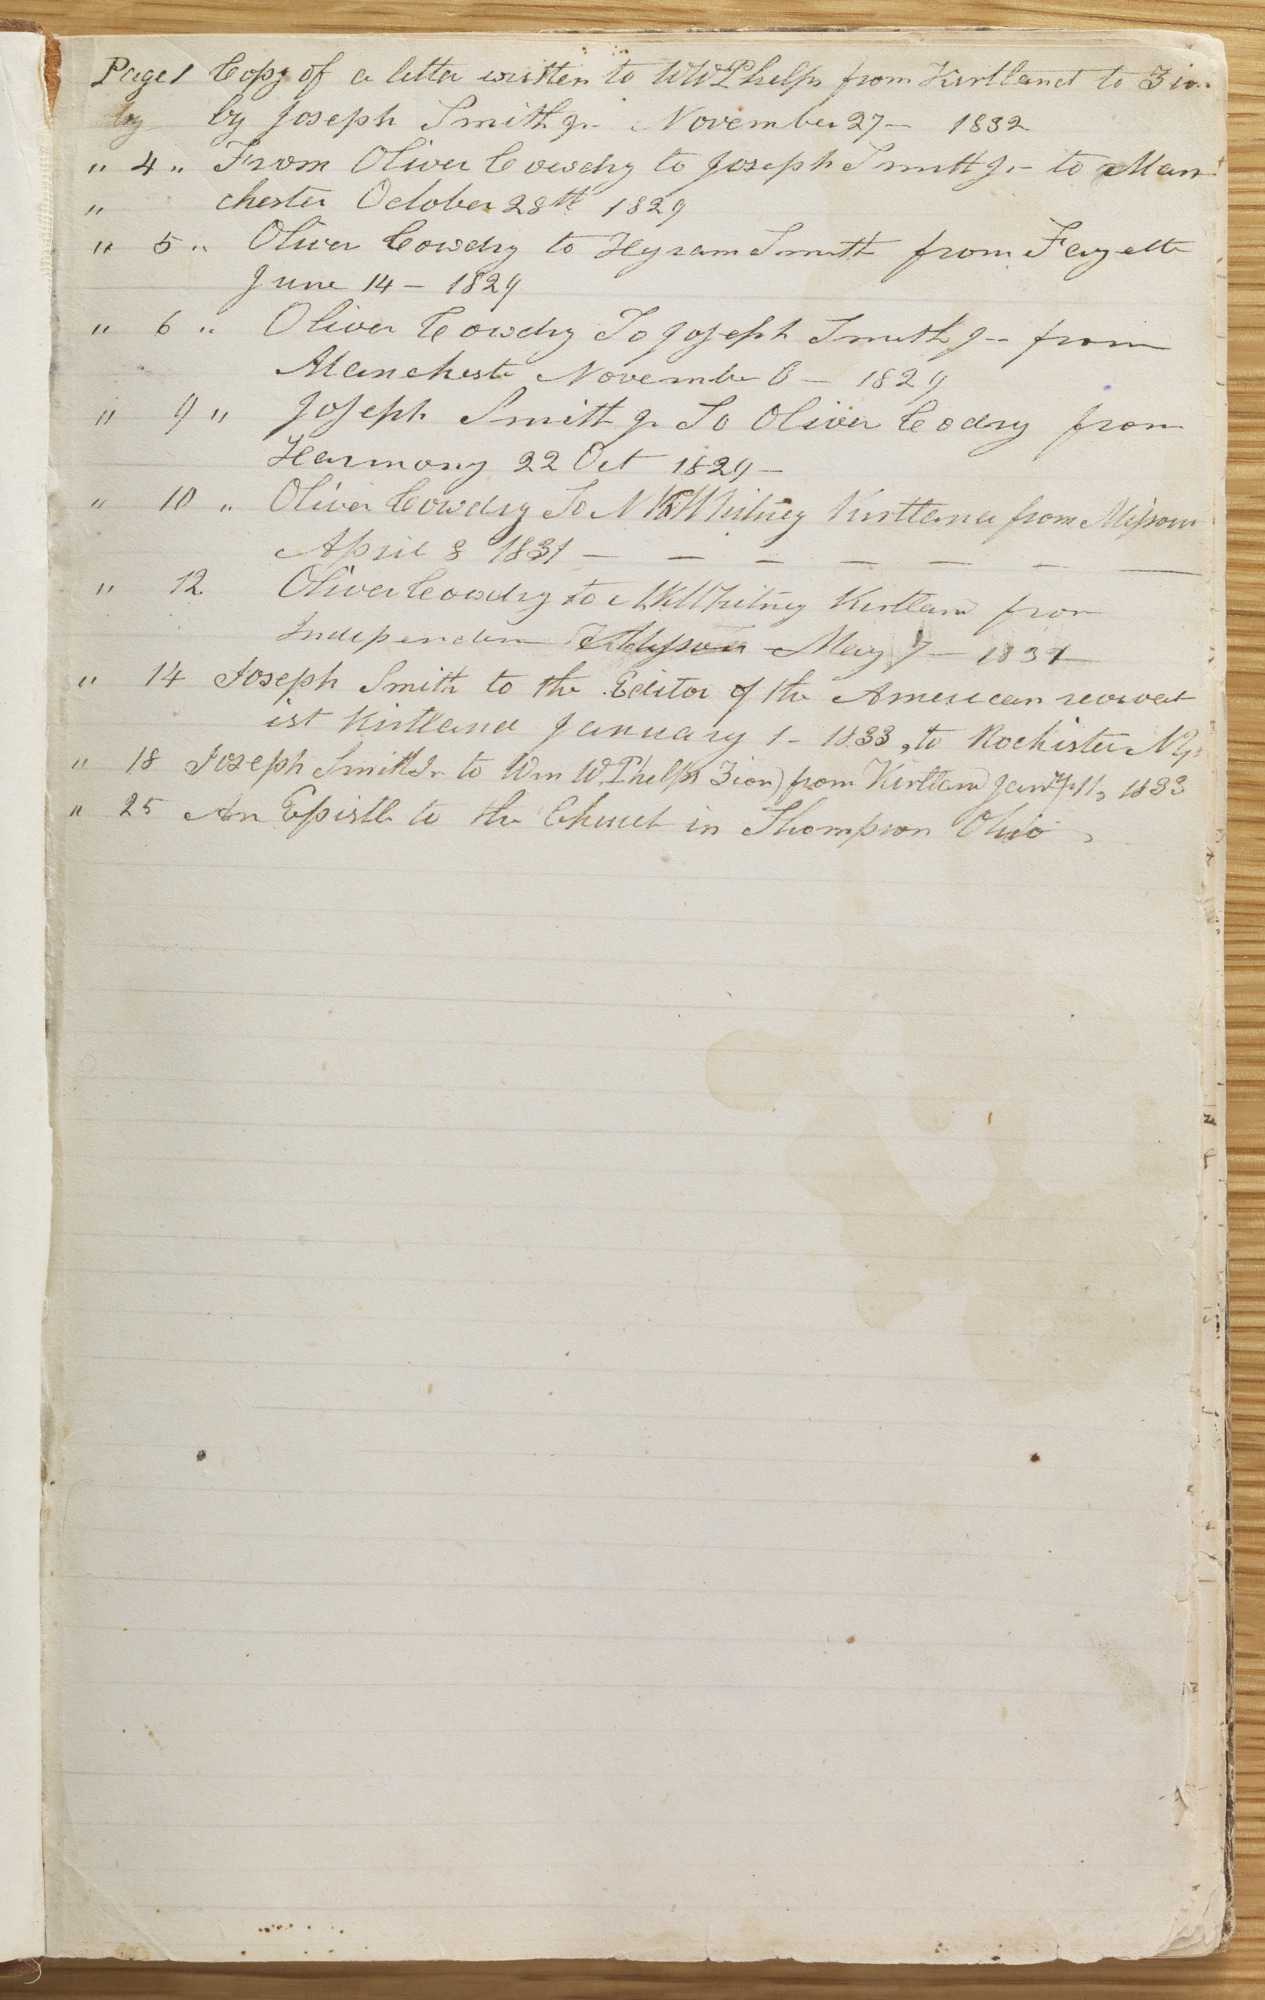 Page 1 Copy of a letter written to W W Phelps from Kirtland to Zion
by by Joseph Smith Jr. November 27 — 1832
" 4 " From Oliver Cowdry to Joseph Smith Jr — to Man
" chester October 28th 1829
" 5 " Oliver Cowdry to Hyram Smith from Fayette
June 14 — 1829
" 6 " Oliver Cowdry To Joseph Smith Jr — from
Manchester November 6 — 1829
" 9 " Joseph Smith Jr To Oliver Codry from
Harmony 22 Oct 1829 —
" 10 " Oliver Cowdry To N K Whitney Kirtland from Missouri
April 8 1831 — — — — — — —
" 12 Oliver Cowdry to N K Whitney Kirtland from
Independen Missouri May 7 — 1831
" 14 Joseph Smith to the Editor of the American revival
ist Kirtland January 1 — 1833, to Rochister N.Y.
" 18 Joseph Smith Jr to Wm W. Phelps Zion) from Kirtland Jany. 11, 1833
" 25 An Epistle to the Church in Thompson Ohio,